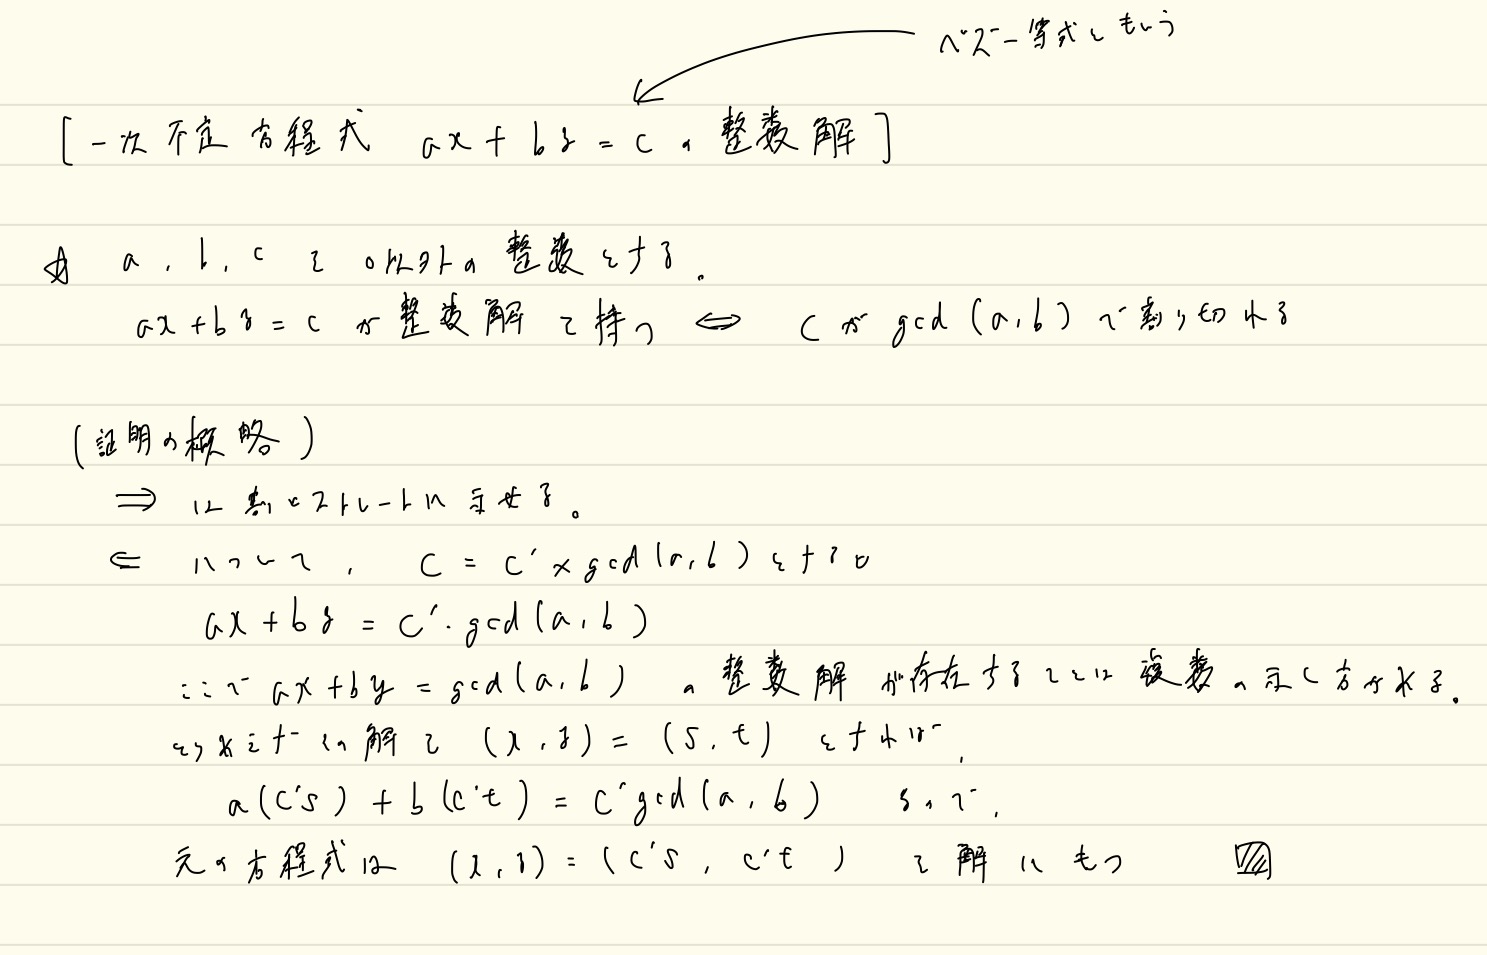 ベズー等式ともいう
[一次不定方程式 ax + by = c の整数解]
☆ a, b, c を 0以外の整数とする.
ax + by = c が整数解を持つ ⟺ c が gcd(a, b) で割り切れる
(証明の概略)
⇒ は割とストレートに示せる。
⇐ について, c = c' × gcd(a, b) とすると
ax + by = c'・gcd(a, b)
ここで ax + by = gcd(a, b) の整数解が存在することは複数の示し方がある.
とりあえずその解を (x, y) = (s, t) とすれば,
a(c's) + b(c't) = c'gcd(a, b) なので,
元の方程式は (x, y) = (c's, c't) を解にもつ ▨